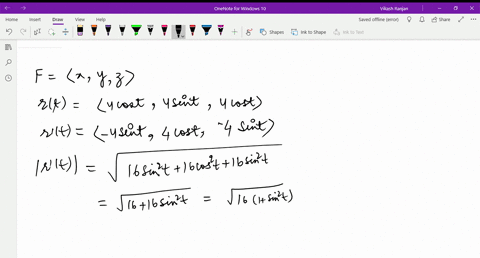 OneNote for Windows 10
Vikash Ranjan
Home Insert Draw View Help
Saved offline (error) Share
Shapes Ink to Shape Ink to Text
F = ⟨x, y, z⟩
r(t) = ⟨4cost, 4sint, 4cost⟩
r'(t) = ⟨-4sint, 4cost, -4sint⟩
|r'(t)| = √(16sin²t+16cos²t+16sin²t)
= √(16+16sin²t) = √(16(1+sin²t))